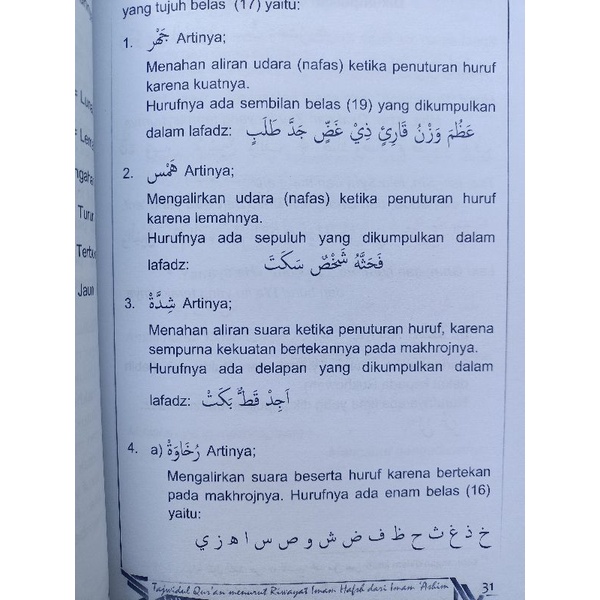 yang tujuh belas (17) yaitu:
1. جَهْر Artinya;
Menahan aliran udara (nafas) ketika penuturan huruf
karena kuatnya.
Hurufnya ada sembilan belas (19) yang dikumpulkan
dalam lafadz: عَظُمَ وَزْنُ قَارِئٍ ذِيْ غَضٍّ جَدَّ طَلَبٍ
2. هَمْس Artinya;
Mengalirkan udara (nafas) ketika penuturan huruf
karena lemahnya.
Hurufnya ada sepuluh yang dikumpulkan dalam
lafadz: فَحَثَّهُ شَخْصٌ سَكَتَ
3. شِدَّةْ Artinya;
Menahan aliran suara ketika penuturan huruf, karena
sempurna kekuatan bertekannya pada makhrojnya.
Hurufnya ada delapan yang dikumpulkan dalam
lafadz: اَجِدْ قَطٌّ بَكَتْ
4. a) رُخَاوَةْ Artinya;
Mengalirkan suara beserta huruf karena bertekan
pada makhrojnya. Hurufnya ada enam belas (16)
yaitu:
خ ذ غ ث ح ظ ف ض ش و ص س ا ه ز ي
Tajwidul Qur'an menurut Riwayat Imam Hafsh dari Imam 'Ashim
31